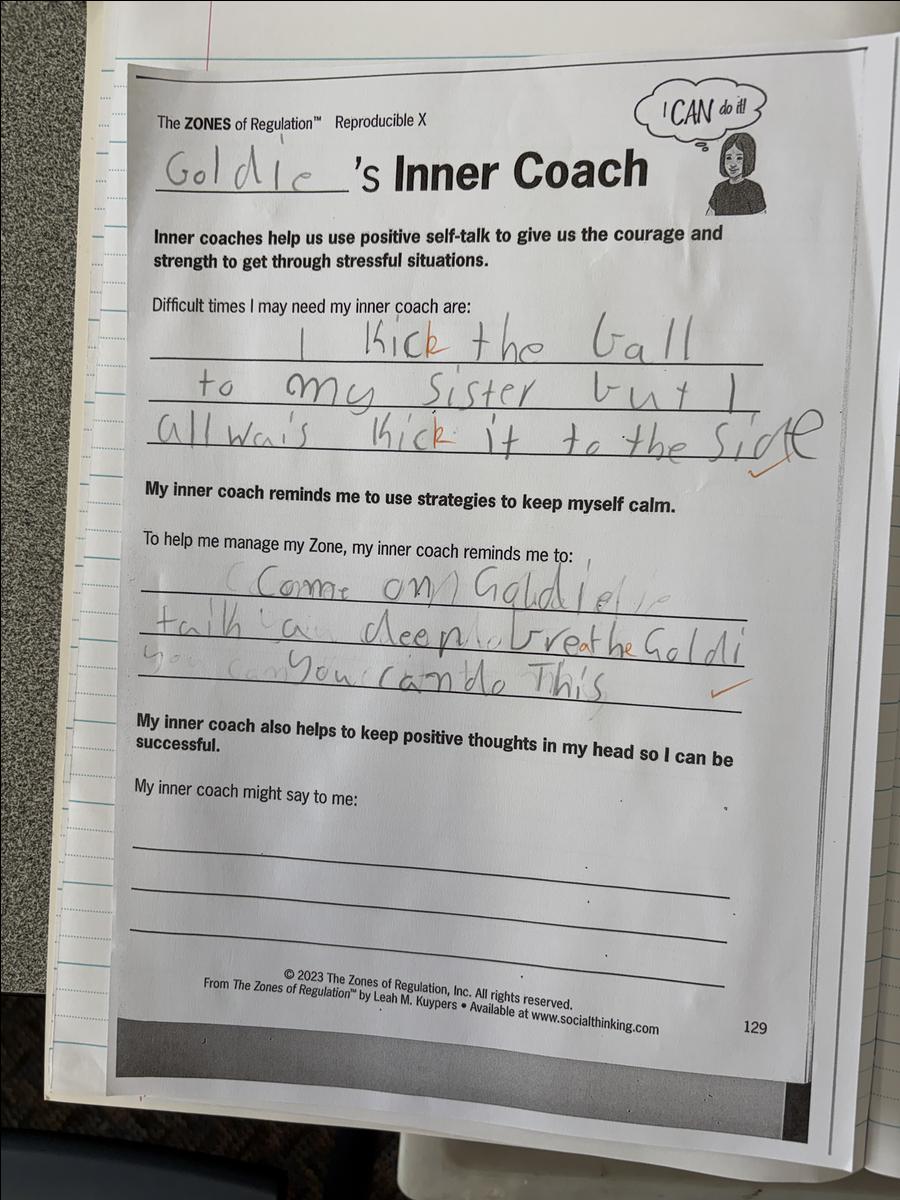 I CAN do it!
The ZONES of Regulation™ Reproducible X
Goldie 's Inner Coach
Inner coaches help us use positive self-talk to give us the courage and
strength to get through stressful situations.
Difficult times I may need my inner coach are:
I kick the ball
to my sister but I
allwais kick it to the side
My inner coach reminds me to use strategies to keep myself calm.
To help me manage my Zone, my inner coach reminds me to:
Come on Goldie
taik a deep breathe Goldi
You can do This
My inner coach also helps to keep positive thoughts in my head so I can be
successful.
My inner coach might say to me:
© 2023 The Zones of Regulation, Inc. All rights reserved.
From The Zones of Regulation™ by Leah M. Kuypers • Available at www.socialthinking.com
129